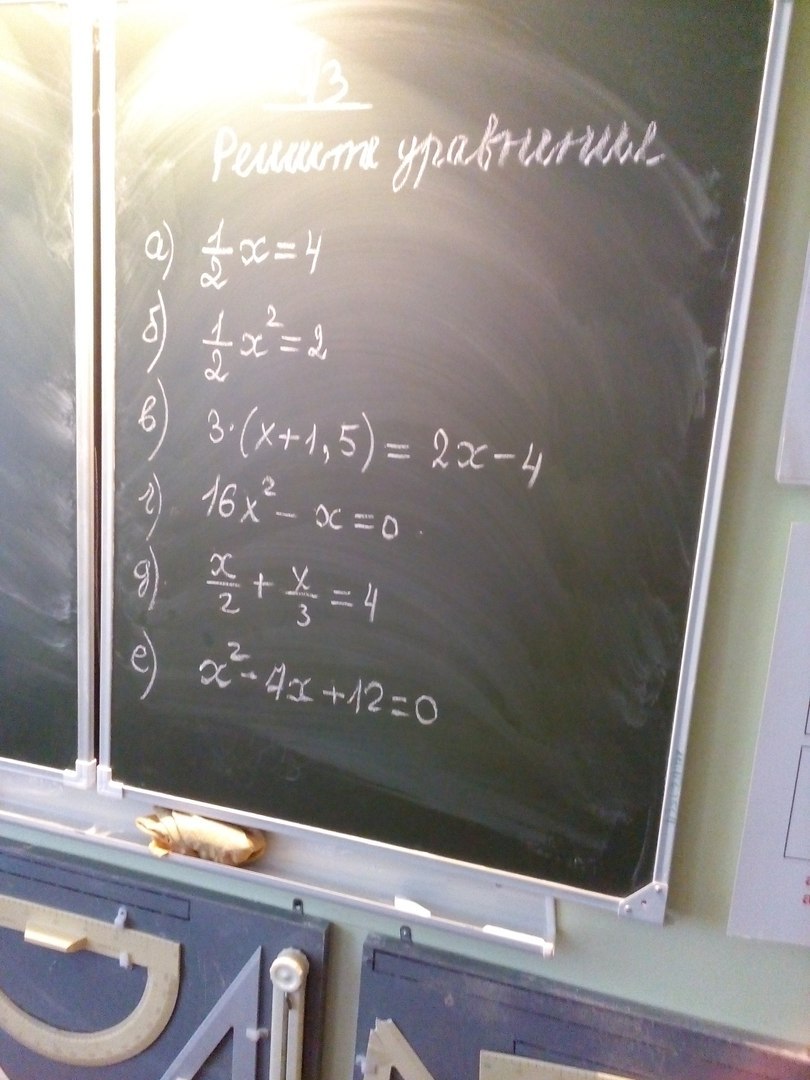 13
Решите уравнения
а) 1/2 x = 4
б) 1/2 x² = 2
в) 3·(x+1,5) = 2x-4
г) 16x² - x = 0
д) x/2 + x/3 = 4
е) x² - 7x + 12 = 0